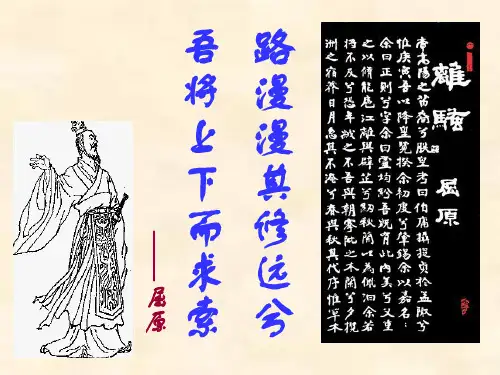 離騷 屈原
帝高陽之苗裔兮朕皇考曰伯庸攝提貞於孟陬兮
惟庚寅吾以降皇覽揆余初度兮肇錫余以嘉名：
余曰正則兮字余曰靈均紛吾既有此內美兮又重
之以脩能扈江離與辟芷兮紉秋蘭以為佩汩余若
將不及兮恐年歲之不吾與朝搴阰之木蘭兮夕攬
洲之宿莽日月忽其不淹兮春與秋其代序惟草木
路漫漫其修远兮
吾将上下而求索
——屈原